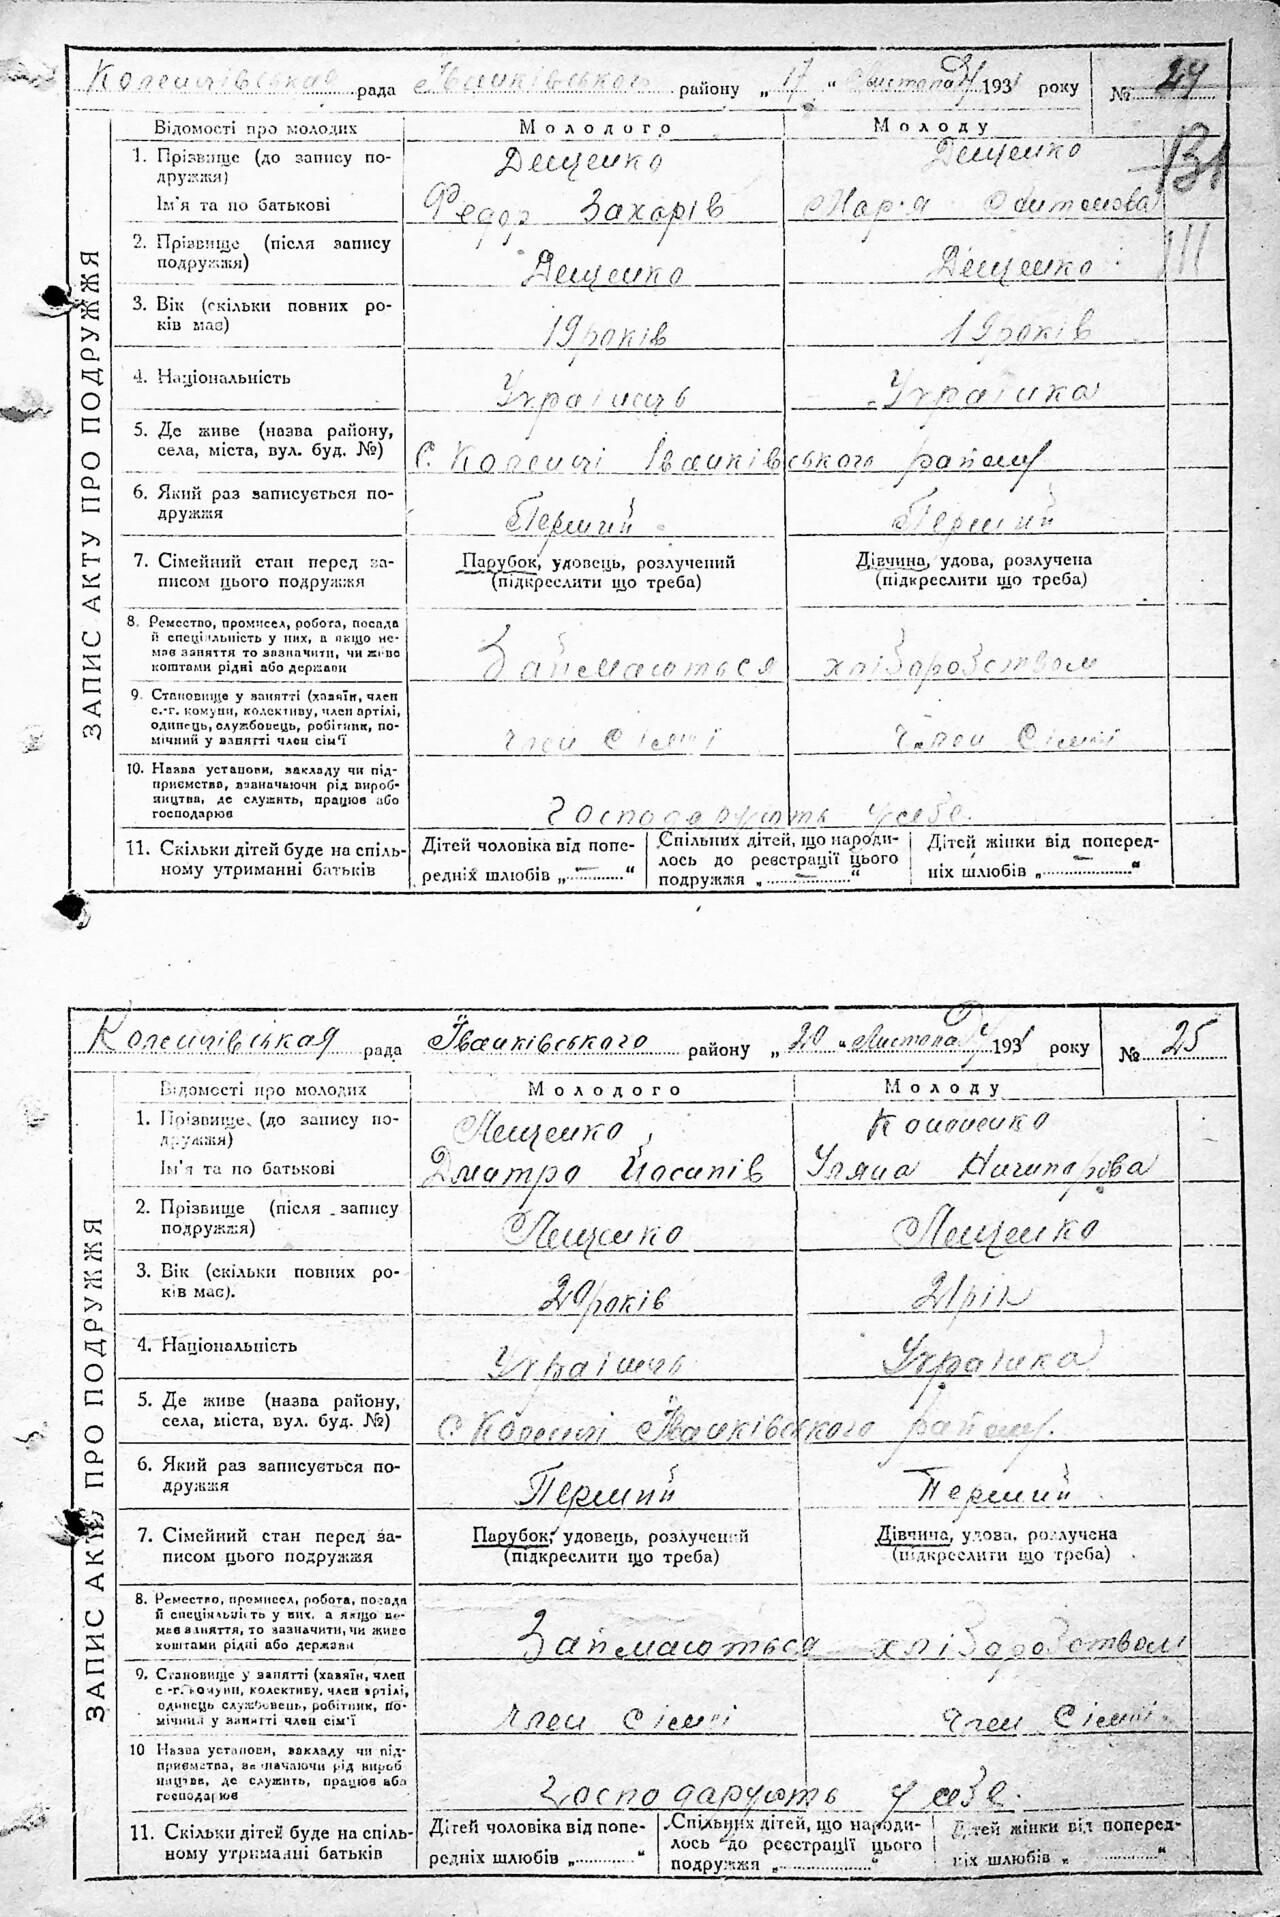 Коленцівская рада Іванківського району „ 17 “ Листопад 1931 року № 24
131
Відомості про молодих Молодого Молоду
1. Прізвище (до запису по-
дружжя) Дещенко Дещенко
Ім'я та по батькові Федор Захарів Мар'я
2. Прізвище (після запису
подружжя) Дещенко Дещенко
3. Вік (скільки повних ро-
ків має) 19 років 19 років
4. Національність Украінець Украінка
5. Де живе (назва району,
села, міста, вул. буд. №) С. Коленці Іванківського району
6. Який раз записується по-
дружжя Перший Перший
7. Сімейний стан перед за-
писом цього подружжя
Парубок, удовець, розлучений
(підкреслити що треба)
Дівчина, удова, розлучена
(підкреслити що треба)
8. Ремество, промисел, робота, посада
й спеціяльність у них, а якщо не-
має заняття то зазначити, чи живе
коштами рідні або держави
Займаються хліборобством
9. Становище у занятті (хазяїн, член
с.-г. комуни, колективу, член артілі,
одинець, службовець, робітник, по-
мічний у занятті член сім'ї
член сіемні член сіемні
10. Назва установи, закладу чи під-
приємства, зазначаючи рід вироб-
ництва, де служить, працює або
господарює
Господарують у себе
11. Скільки дітей буде на спіль-
ному утриманні батьків
Дітей чоловіка від попе-
редніх шлюбів „ — “
Спільних дітей, що народи-
лось до реєстрації цього
подружжя „ — “
Дітей жінки від поперед-
ніх шлюбів „ — “
ЗАПИС АКТУ ПРО ПОДРУЖЖЯ
Коленцівіская рада Іванківського району „ 20 “ Листопад 1931 року № 25
Відомості про молодих Молодого Молоду
1. Прізвище (до запису по-
дружжя) Лещенко Кононенко
Ім'я та по батькові Дматро Йосипів Уляна Ничипорова
2. Прізвище (після запису
подружжя) Лещенко Лещенко
3. Вік (скільки повних ро-
ків має). 20 років 21 рік
4. Національність Украінець Украінка
5. Де живе (назва району,
села, міста, вул. буд. №) С. Коленці Іванківського району.
6. Який раз записується по-
дружжя Перший Перший
7. Сімейний стан перед за-
писом цього подружжя
Парубок, удовець, розлучений
(підкреслити що треба)
Дівчина, удова, розлучена
(підкреслити що треба)
8. Ремество, промисел, робота, посада
й спеціяльність у них, а якщо не-
має заняття, то зазначити, чи живе
коштами рідні або держави
Займаються хліборобством
9. Становище у занятті (хазяїн, член
с.-г. комуни, колективу, член артілі,
одинець службовець, робітник, по-
мічний у занятті член сім'ї
член сіемні член сіемні
10 Назва установи, закладу чи під-
приємства, зазначаючи рід вироб
ництва, де служить, працює або
господарює
Господарують у себе.
11. Скільки дітей буде на спіль-
ному утриманні батьків
Дітей чоловіка від попе-
редніх шлюбів „ “
Спільних дітей, що народи-
лось до реєстрації цього
подружжя „ “
Дітей жінки від поперед-
ніх шлюбів „ “
ЗАПИС АКТУ ПРО ПОДРУЖЖЯ